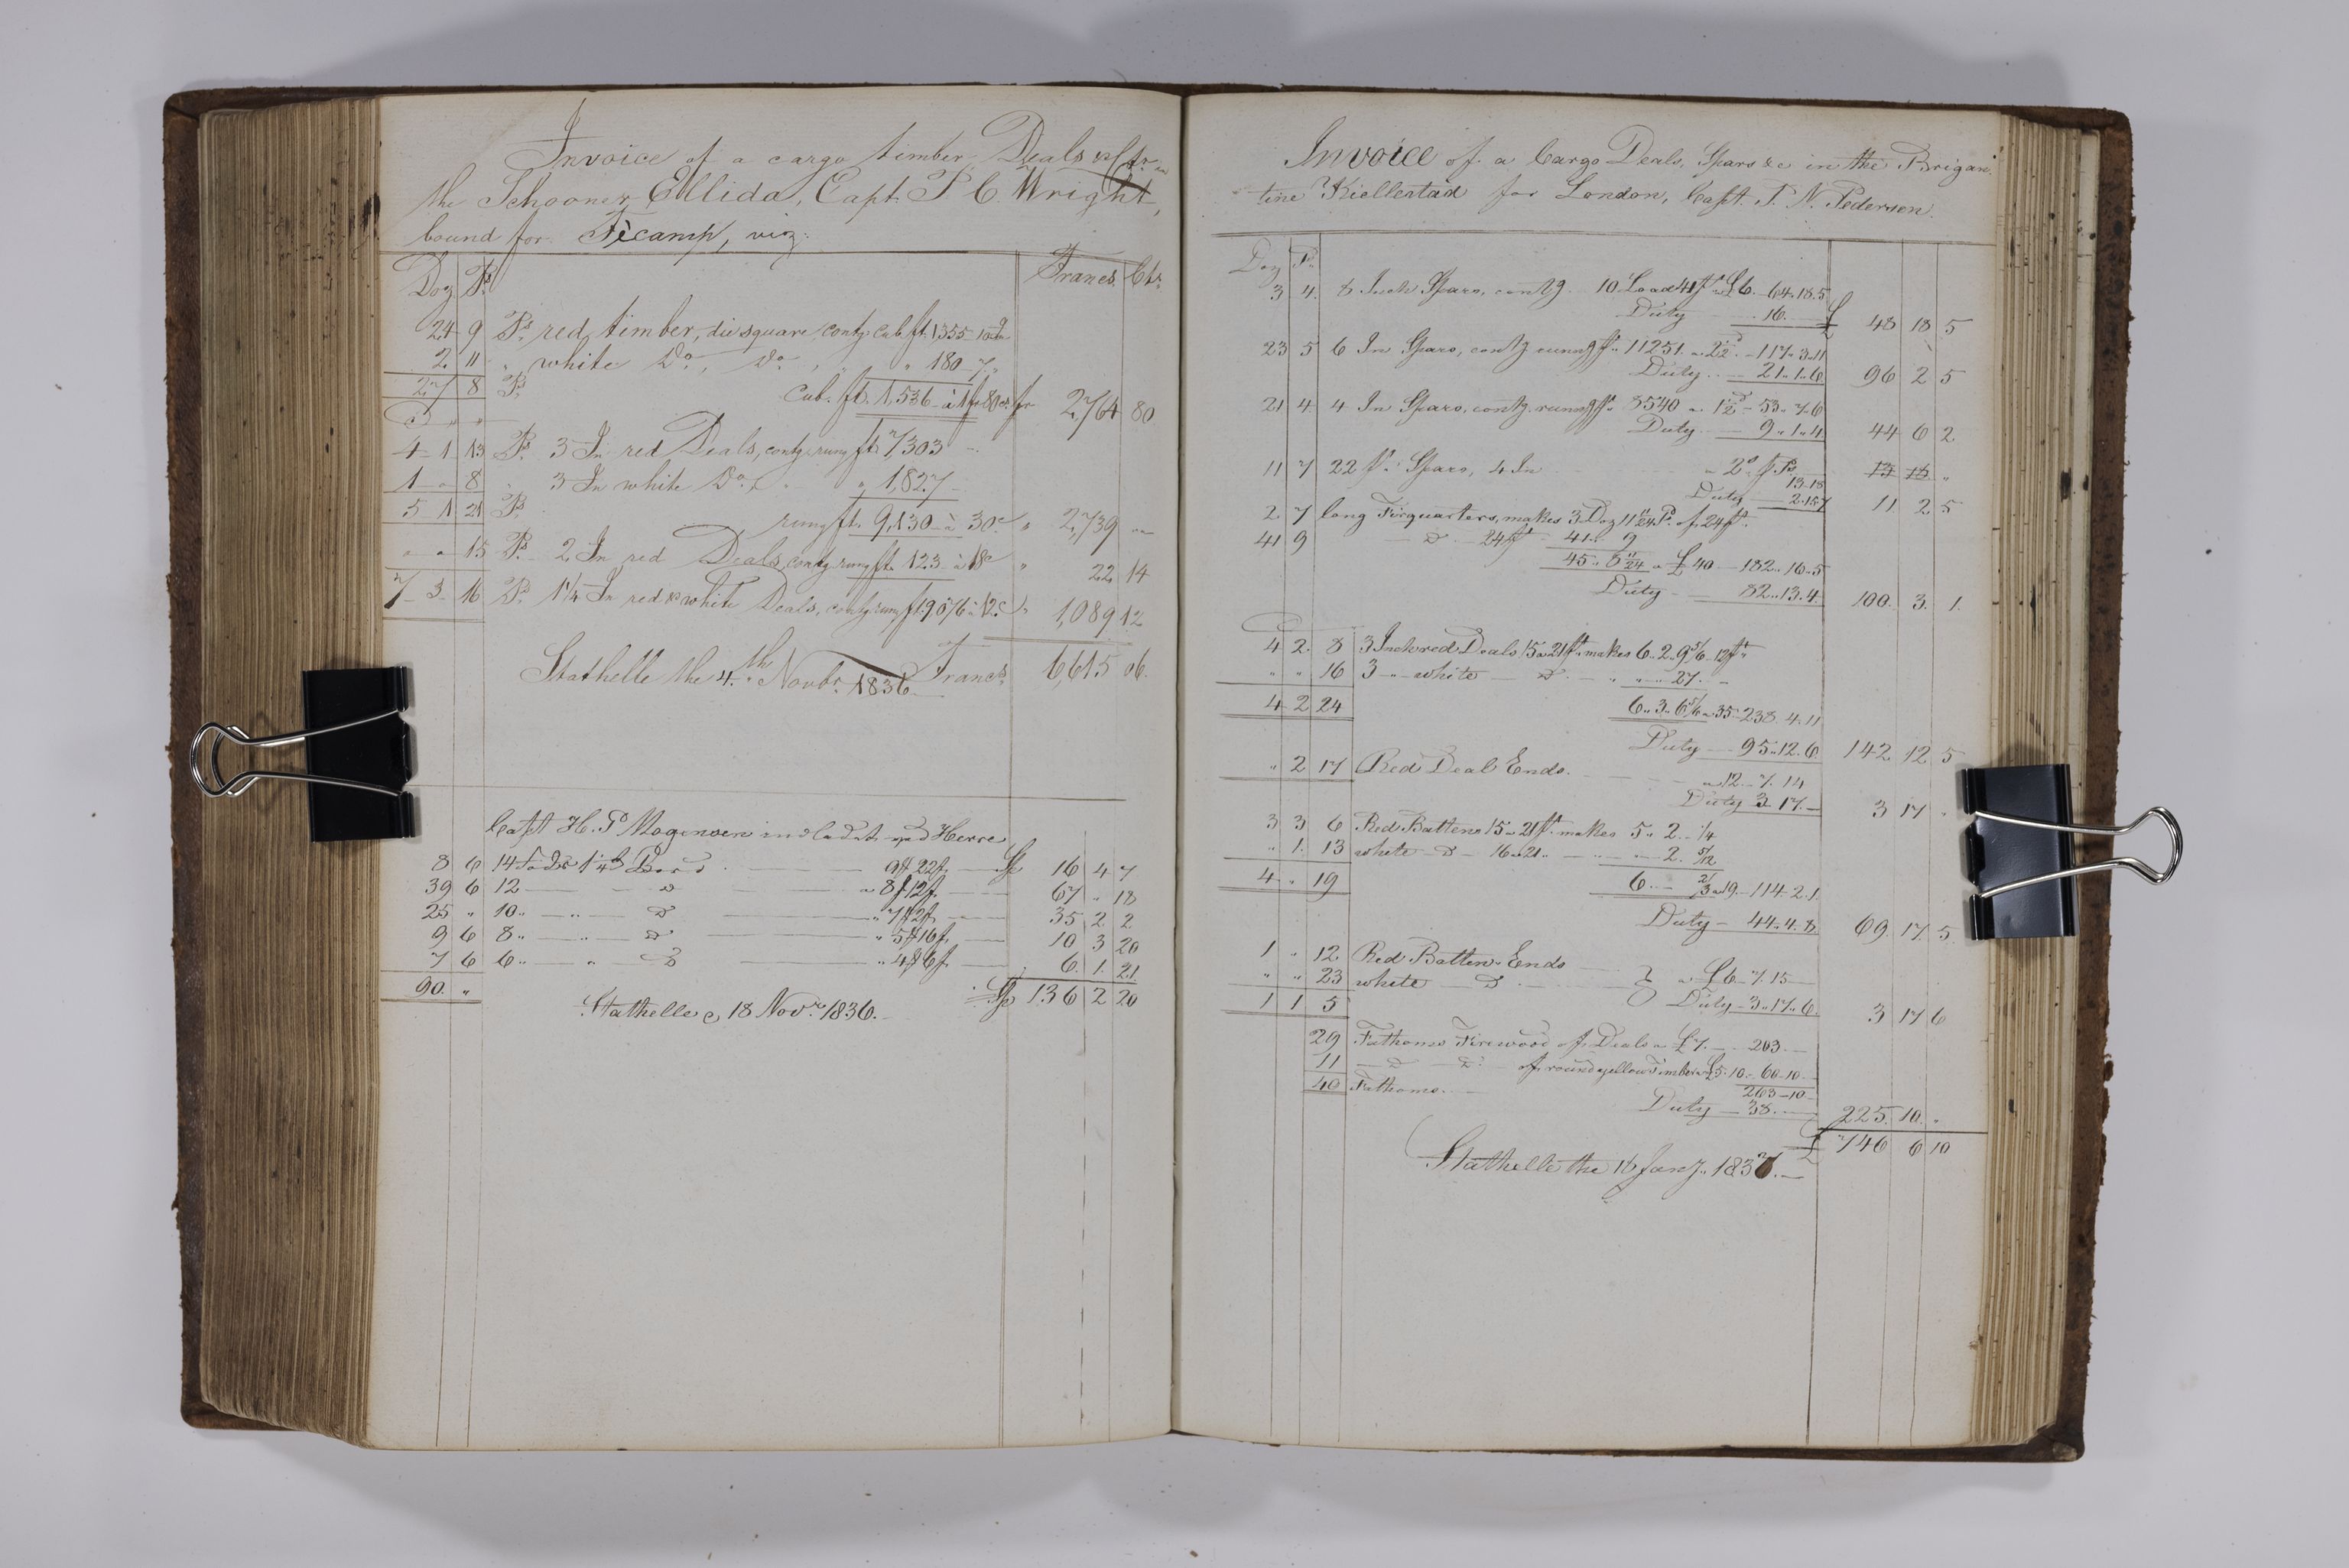 Invoice of a cargo timber, Deals &c &c in
the Schooner Ellida, Capt. P. C. Wright,
bound for Fècamp, viz:
Doz Ps Francs. Cts.
24 9 Ps red timber, die square contg. cub ft. 1,355-10
2. 11 " white Do., Do. " " 180-7 "
27 8 Ps cub. ft. 1,536 à 1 fr 80 cs fr 2,764 80
4 1 13 Ps 3 In red Deals, contg. rung ft. 7303 -
1 " 8 " 3 In white Do. " 1,827 -
5 1 21 Ps rung ft. 9,130 à 30c " 2,739 " "
" " 15 Ps 2 In red Deals, contg. rung ft. 123 à 18c " 22 14
7 3 16 Ps 1 1/4 In red & white Deals, contg. rung ft. 9076 à 12c " 1,089 12
Stathelle the 4.th Novbr. 1836. Francs. 6,615 06.
Capt H. P. Mogensen indladet ved Herre
8 6 14 1 1/4 Bord 22 Sp 16 4 7
39 6 12 — D — a 8 12 67 " 18
25 " 10 " — " — D — " 7 2 35 2 2
9 6 8 " — " — D — " 5 16 10 3 20
7 6 6 " — " — D — " 4 6 6. 1. 21
90. " Sp 136 2 20
Stathelle 18 Novr. 1836.
Invoice of a Cargo Deals, Spars &c in the Brigan-
tine Kiellestad for London, Capt. P. N. Pedersen.
Doz Ps
3 4. 8 Inch Spars, contg. 10 Load 41 ft a £6. 64.18.5
Duty 16. — £ 48 18 5
23 5 6 In Spars, contg rung ft. 11251. a 2 1/2 d — 117. 3. 11
Duty — 21. 1. 6 96 2 5
21 4. 4 In Spars, contg. rung ft. 8540 a 1 1/2 d — 53. 7. 6
Duty — 9. 1. 4 44 6 2
11 7 22 ft. Spars, 4 In — a 2 Ps 13 18 "
13.18
Duty — 2.15.7 11 2 5
2 7 long Firquarters, makes 3 Doz 11 11/24 Ps. of 24 ft.
41 9 — D — 24 ft 41. 9
45. 8 11/24 a £40 — 182. 16. 5
Duty — 82. 13. 4. 100. 3. 1.
4 2. 8 3 Inch red Deals 15 a 21 ft. makes 6. 2. 9 5/6. 12 ft.
" " 16 3 " white — D — " " 27. —
4 2 24 6. 3. 6 5/6 a 35 238. 4. 11
Duty — 95. 12. 6 142 12 5
" 2 17 Red Deal Ends. — a 12 — 7. 14
Duty 3. 17. — 3 17 "
3 3 6 Red Battens 15 a 21 ft. makes 5. 2. 1/4
" 1. 13 white — D — 16 a 21. — " — 2. 5/12
4 " 19 6. — 2/3 a 19 — 114. 2. 1.
Duty — 44. 4. 8. 69. 17. 5.
1 " 12. Red Batten Ends
" " 23 white — D — } a £6 — 7. 15 —
1 1 5 Duty — 3. 17. 6. 3 17 6
29 Fathoms Firewood of Deals a £7. — 203. —
11 — D — D — of round yellow Timber a £5. 10. — 60. 10. —
40 Fathoms. — 263 — 10 —
Duty — 38. — 225. 10. "
£ 746 6 10
Stathelle the 16 Jany. 1837. —